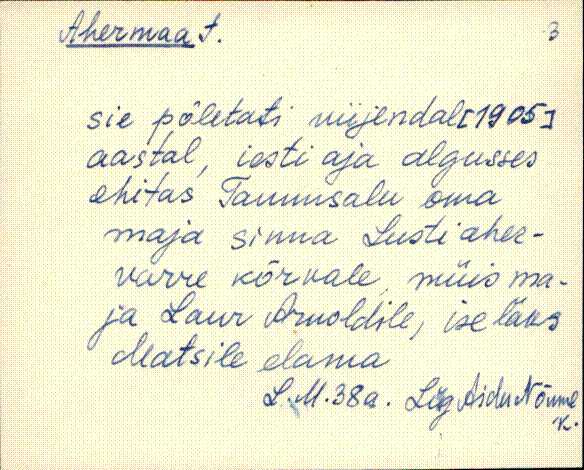 Ahermaa t. 3
sie põletati viijendal [1905]
aastal, iesti aja algusses
ehitas Tammsalu oma
maja sinna Lusti aher-
varre kõrvale, müis ma-
ja Laur Arnoldile, ise läks
Matsile elama
L.M. 38a. Lüg Aidu Nõmme
k.